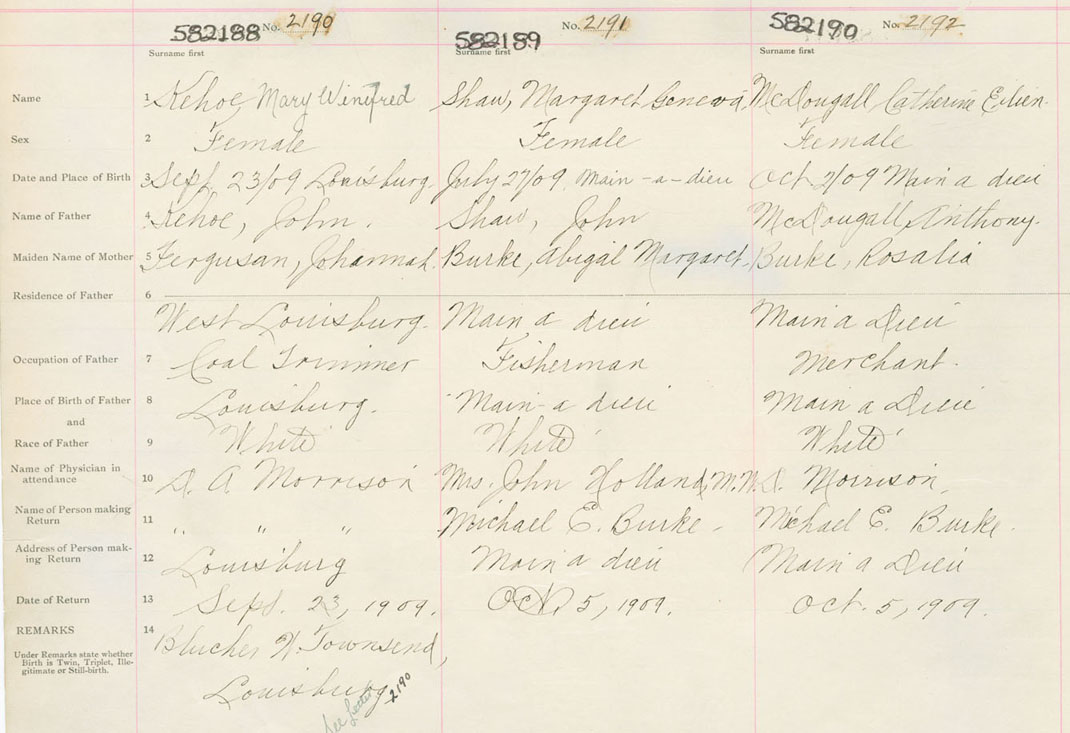 582188 No. 2190 582189 No. 2191 582190 No. 2192
Surname first Surname first Surname first
Name 1 Kehoe, Mary Winifred Shaw, Margaret Geneva McDougall, Catherine Eilien
Sex 2 Female Female Female
Date and Place of Birth 3 Sept. 23/09 Louisburg. July 27/09. Main-a-dieu Oct 2/09 Main a dieu
Name of Father 4 Kehoe, John. Shaw, John McDougall, Anthony.
Maiden Name of Mother 5 Fergusan, Johannah. Burke, Abigal Margaret. Burke, Rosalia
Residence of Father 6
West Louisburg. Main a dieu Main a Dieu
Occupation of Father 7 Coal Trimmer Fisherman Merchant.
Place of Birth of Father 8 Louisburg. Main-a dieu Main a Dieu
and
Race of Father 9 White White White
Name of Physician in
attendance 10 D. A Morrison Mrs. John Holland, M.W. D. Morrison,
Name of Person making
Return 11 " " " Michael E. Burke - Michael E. Burke.
Address of Person mak-
ing Return 12 Louisburg Main a dieu Main a Dieu
Date of Return 13 Sept. 23, 1909. Oct. 5, 1909. Oct. 5, 1909.
REMARKS 14 Blucher H. Townsend,
Under Remarks state whether
Birth is Twin, Triplet, Ille-
gitimate or Still-birth.
Louisburg 2190
See Letter